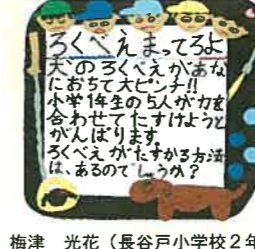 ろくべえまってろよ
犬のろくべえがあな
におちて大ピンチ!!
小学1年生の5人が力を
合わせてたすけようと
がんばります。
ろくべえがたすかる方法
は、あるのでしょうか?
梅津 光花(長谷戸小学校2年